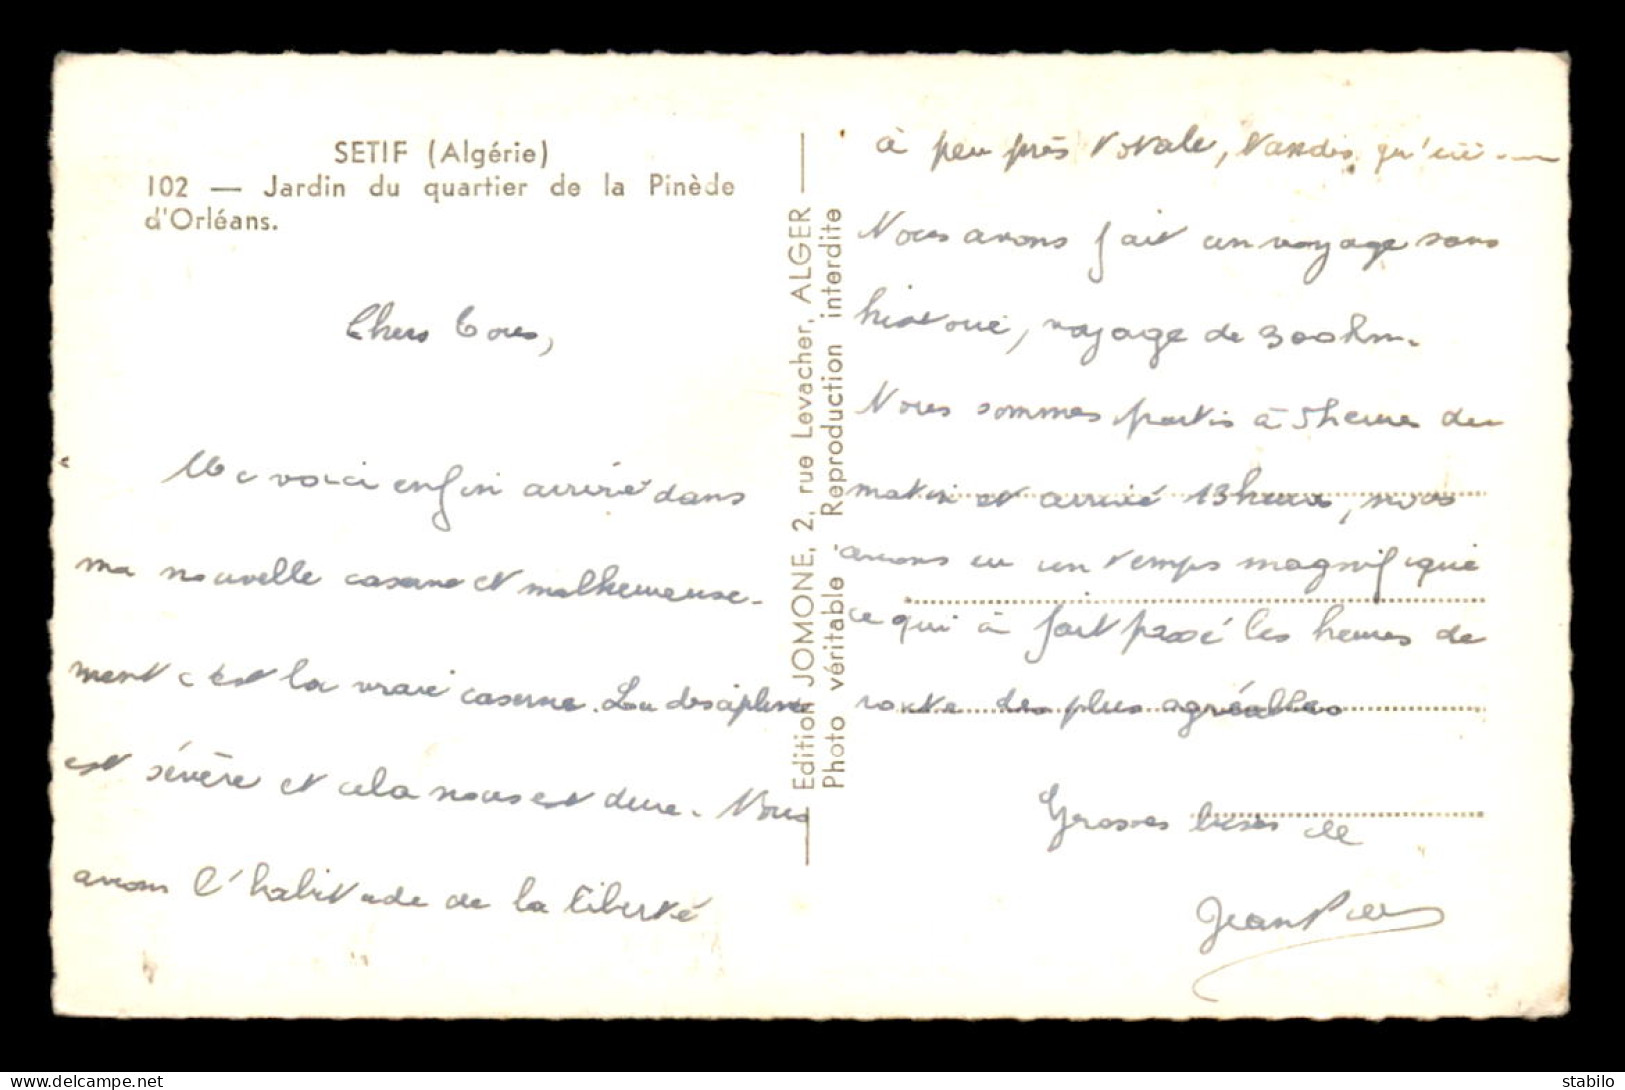 SETIF (Algérie)
102 — Jardin du quartier de la Pinède
d'Orléans.
Chers Tous,
Me voici enfin arrivé dans
ma nouvelle caserne et malheureuse-
ment c'est la vraie caserne. La discipline
est sévère et cela nous est dure. Nous
avions l'habitude de la liberté
Edition JOMONE, 2, rue Levacher, ALGER
Photo véritable - Reproduction interdite
à peu près totale, tandis qu'ici
Nous avons fait un voyage sans
histoire, voyage de 300 km.
Nous sommes partis à 5 heures du
matin et arrivé 13 heures, nous
avions eu un temps magnifique
ce qui à fait passé les heures de
route des plus agréables
Grosses bises de
Jean P
delcampe.net
stabilo